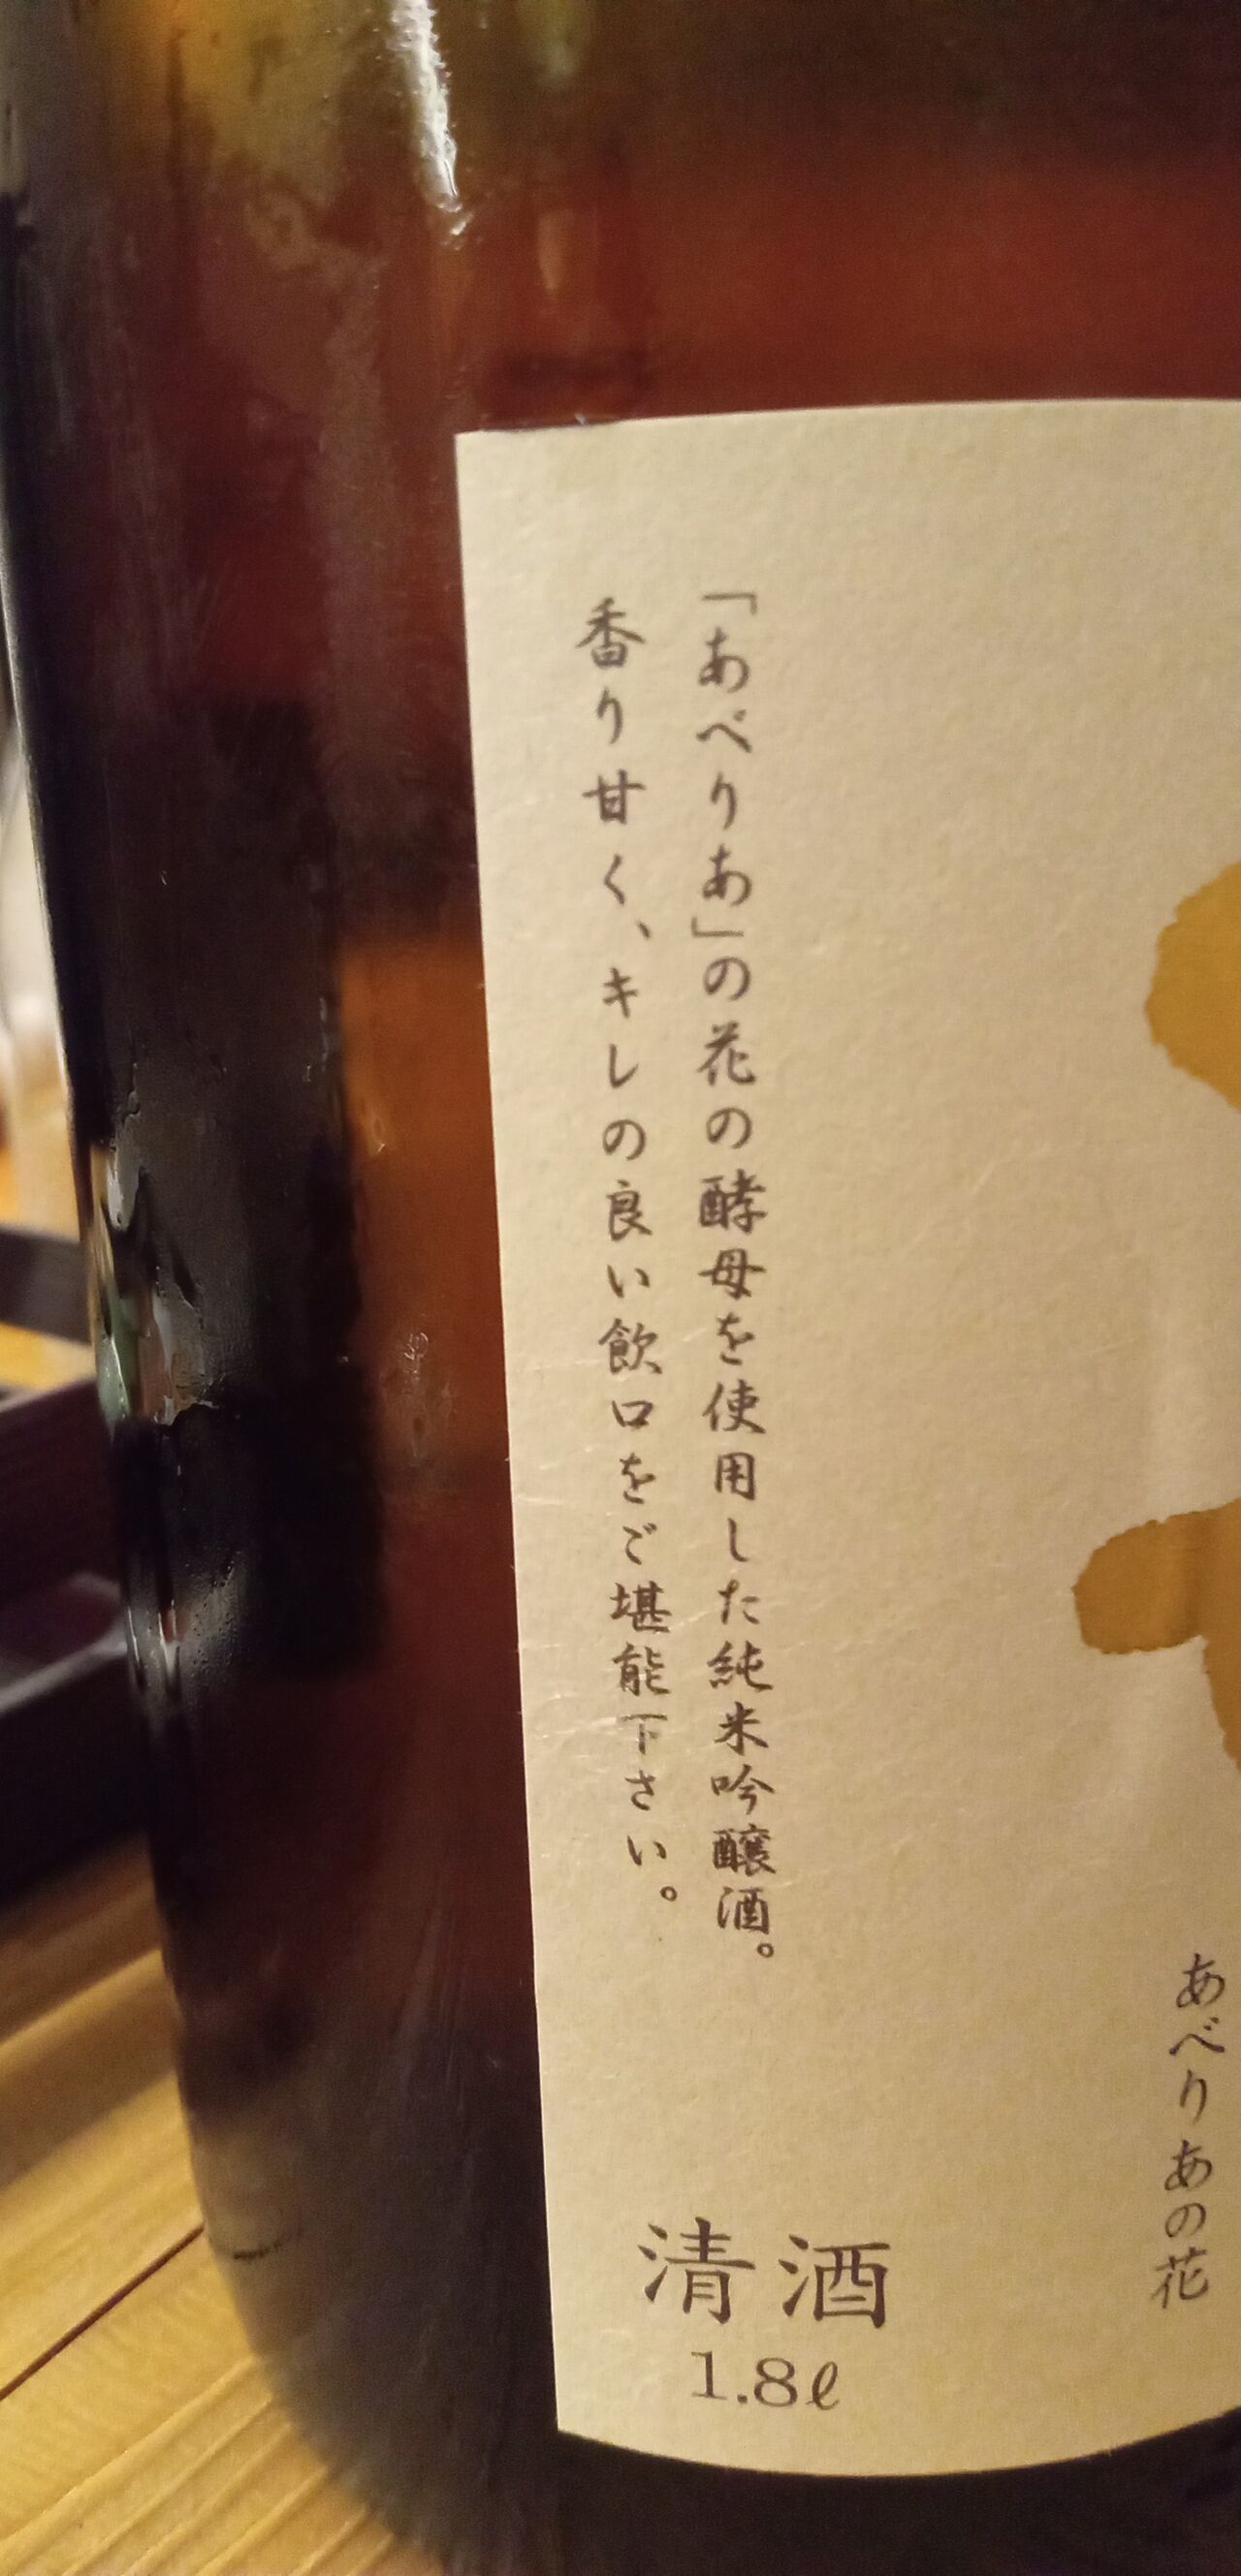 あべりあの花
「あべりあ」の花の酵母を使用した純米吟醸酒。
香り甘く、キレの良い飲口をご堪能下さい。
清酒
1.8ℓ